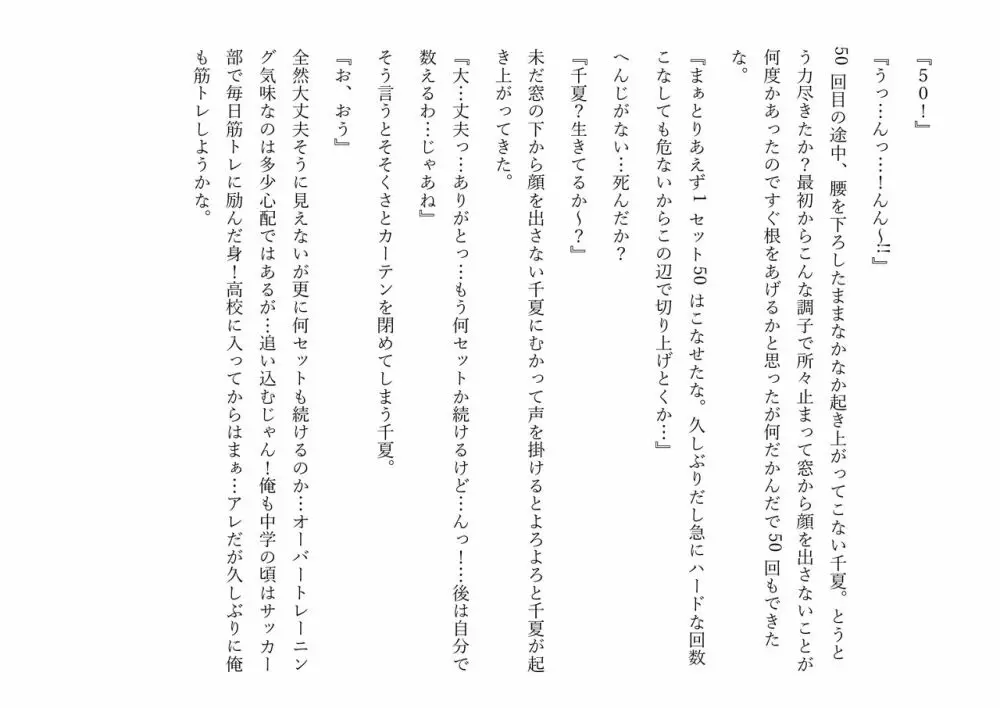 『５０！』
『うっ…んっ…！んん～!!』
50 回目の途中、腰を下ろしたままなかなか起き上がってこない千夏。とうと
う力尽きたか？最初からこんな調子で所々止まって窓から顔を出さないことが
何度かあったのですぐ根をあげるかと思ったが何だかんだで 50 回もできた
な。
『まぁとりあえず 1 セット 50 はこなせたな。久しぶりだし急にハードな回数
こなしても危ないからこの辺で切り上げとくか…』
へんじがない…死んだか？
『千夏？生きてるか～？』
未だ窓の下から顔を出さない千夏にむかって声を掛けるとよろよろと千夏が起
き上がってきた。
『大…丈夫っ…ありがとっ…もう何セットか続けるけど…んっ！……後は自分で
数えるわ…じゃあね』
そう言うとそそくさとカーテンを閉めてしまう千夏。
『お、おう』
全然大丈夫そうに見えないが更に何セットも続けるのか…オーバートレーニン
グ気味なのは多少心配ではあるが…追い込むじゃん！俺も中学の頃はサッカー
部で毎日筋トレに励んだ身！高校に入ってからはまぁ…アレだが久しぶりに俺
も筋トレしようかな。